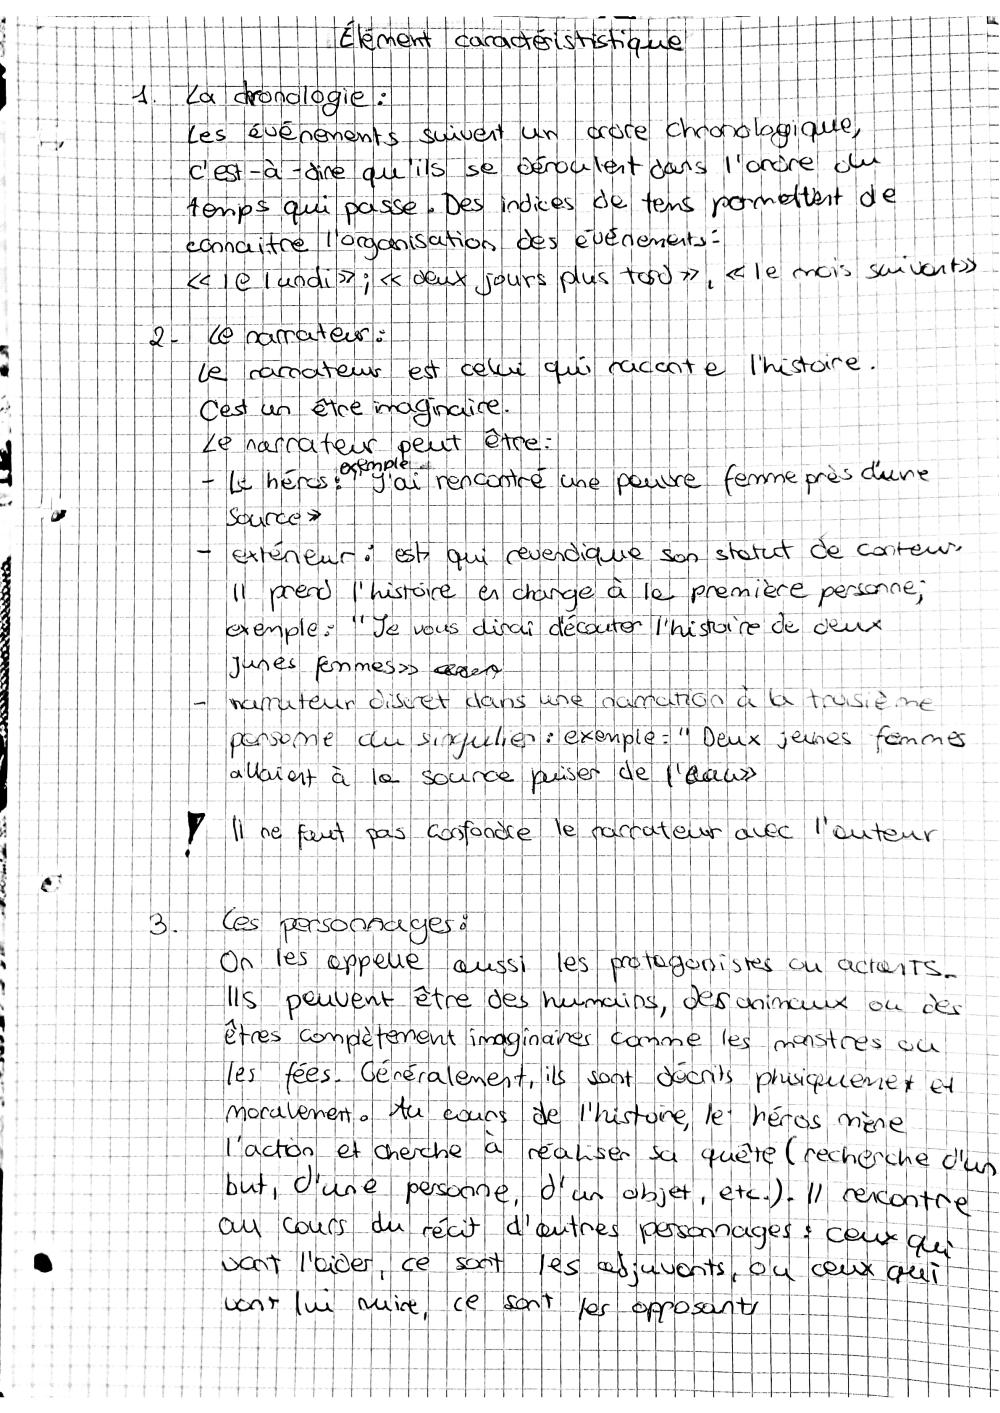 Élément caractérististique
1. La chronologie :
Les événements suivent un ordre chronologique,
c'est-à-dire qu'ils se déroulent dans l'ordre du
temps qui passe. Des indices de tens permettent de
connaitre l'organisation des événements :
« le lundi » ; « deux jours plus tard », « le mois suivant »
2- Le narrateur :
Le narrateur est celui qui raconte l'histoire.
C'est un être imaginaire.
Le narrateur peut être :
- Le héros : exemple "J'ai rencontré une pauvre femme près d'une
source »
- extérieur : est qui revendique son statut de conteur.
Il prend l'histoire en change à la première personne ;
exemple : "Je vous dirai d'écouter l'histoire de deux
junes femmes »
- narrateur discret dans une narration à la troisième
personne du singulier : exemple : " Deux jeunes femmes
allaient à la source puiser de l'eau »
! Il ne faut pas confondre le narrateur avec l'auteur
3. Les personnages :
On les appelle aussi les protagonistes ou actants.
Ils peuvent être des humains, des animaux ou des
êtres complètement imaginaires comme les monstres ou
les fées. Généralement, ils sont décrits phisiquement et
moralement. Au cours de l'histoire, le héros mène
l'action et cherche à réaliser sa quête (recherche d'un
but, d'une personne, d'un objet, etc.). Il rencontre
au cours du récit d'autres personnages : ceux qui
vont l'aider, ce sont les adjuvants, ou ceux qui
vont lui nuire, ce sont les opposants